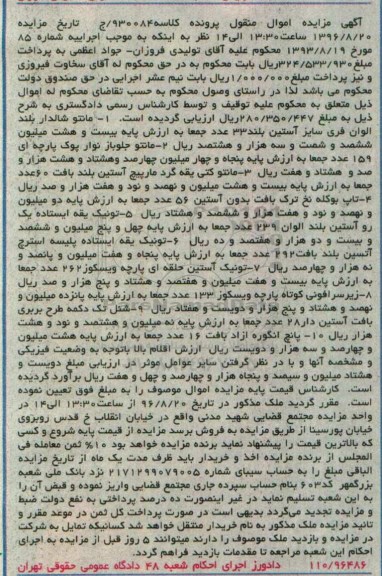 آگهی مزایده اموال منقول پرونده کلاسه۹۳۰۰۸۴/ج تاریخ مزایده
۱۳۹۶/۸/۲۰ ساعت ۱۳:۳۰ الی۱۴ نظر به اینکه به موجب اجراییه شماره ۸۵
مورخ ۱۳۹۳/۸/۱۹ محکوم علیه آقای تولیدی فروزان- جواد اعظمی به پرداخت
مبلغ۳۲۴/۵۳۳/۹۳۰ریال بابت محکوم به در حق محکوم له آقای سخاوت فیروزی
و نیز پرداخت مبلغ۱/۰۰۰/۰۰۰ریال بابت نیم عشر اجرایی در حق صندوق دولت
محکوم می باشد لذا در راستای وصول محکوم به حسب تقاضای محکوم له اموال
ذیل متعلق به محکوم علیه توقیف و توسط کارشناس رسمی دادگستری به شرح
ذیل به مبلغ ۲۸۰/۳۵۰/۴۴۷ریال ارزیابی گردیده است. ۱- مانتو شالدار بلند
الوان فری سایز آستین بلند۳۳ عدد جمعا به ارزش پایه بیست و هشت میلیون
ششصد و شصت و سه هزار و هشتصد ریال ۲-مانتو جلوباز نوار پوک پارچه ای
۱۵۹ عدد جمعا به ارزش پایه پنجاه و چهار میلیون چهارصد وهشتاد و هشت هزار و
صد و هشتاد و هفت ریال ۳-مانتو کتی یقه گرد مارپیچ آستین بلند بافت ۶۰عدد
جمعا به ارزش پایه بیست و هشت میلیون و نهصد و نود و هفت هزار و صد ریال
۴-تاپ بوکله نخ ترک بافت بدون آستین ۵۶ عدد جمعا به ارزش پایه دو میلیون
و نهصد و نود و هفت هزار و ششصد و هشتاد ریال ۵-تونیک یقه ایستاده یک
رو آستین بلند الوان ۲۳۹ عدد جمعا به ارزش پایه چهل و پنج میلیون و ششصد
و بیست و دو هزار و هفتصد و ده ریال ۶-تونیک یقه ایستاده پلیسه استرچ
آتسین بلند بافت۲۹۲ عدد جمعا به ارزش پایه پنجاه و هفت میلیون و پانصد و
نه هزار و چهارصد ریال ۷-تونیک آستین حلقه ای پارچه ویسکوز۲۶۲ عدد جمعا
به ارزش پایه بیست و هفت میلیون و هفتصد و هشتاد و پنج هزار و صد ریال
۸-زیرسرافونی کوتاه پارچه ویسکوز ۱۳۳ عدد جمعا به ارزش پایه پانزده میلیون و
نهصد و هشتاد و پنج هزار و دویست و هفتاد ریال ۹-شنل تک دکمه طرح بربری
بافت آستین دار۲۸ عدد جمعا به ارزش پایه نه میلیون و هشتصد و نود و هشت
هزار ریال ۱۰- پانچ انگوره ازاد بافت ۱۶ عدد جمعا به ارزش پایه هشت میلیون
و چهارصد و سه هزار و دویست ریال ارزش اقلام بالا باتوجه به وضعیت فیزیکی
و مشخصه آنها و با در نظر گرفتن سایر عوامل موثر در ارزیابی مبلغ دویست و
هشتاد میلیون و سیصد و پنجاه هزار و چهارصد و چهل و هفت ریال برآورد گردیده
است. کارشناس قیمت پایه مزایده اموال موصوف را به مبلغ فوق تعیین نموده
است. مقرر گردید ملک مذکور در تاریخ ۹۶/۸/۲۰ از ساعت ۱۳:۳۰ الی۱۴ در
واحد مزایده مجتمع قضایی شهید مدنی واقع در خیابان انقلاب خ قدس روبروی
خیابان پورسینا از طریق مزایده به فروش برسد مزایده از قیمت پایه شروع و کسی
که بالاترین قیمت را پیشنهاد نماید برنده مزایده خواهد بود ۱۰% ثمن معامله فی
المجلس از برنده مزایده اخذ و خریدار باید ظرف مدت یک ماه از تاریخ مزایده
الباقی مبلغ را به حساب سیبای شماره ۲۱۷۱۲۹۹۰۷۹۰۰۵ نزد بانک ملی شعبه
بزرگمهر کد۶۰۳ بنام حساب سپرده جاری مجتمع قضایی واریز نموده و قبض آن را
به این شعبه تسلیم نماید در غیر اینصورت ده درصد پرداختی به نفع دولت ضبط
و مزایده تجدید می‌گردد بدیهی است در صورت پرداخت کل ثمن در موعد مقرر و
تائید مزایده ملک مذکور به نام خریدار منتقل خواهد شد کسانیکه تمایل به شرکت
در مزایده و بازدید ملک موصوف را دارند میتوانند ۵ روز قبل از مزایده به اجرای
احکام این شعبه مراجعه تا مقدمات بازدید فراهم گردد.
۱۱۰/۹۶۴۸۶ دادورز اجرای احکام شعبه ۴۸ دادگاه عمومی حقوقی تهران